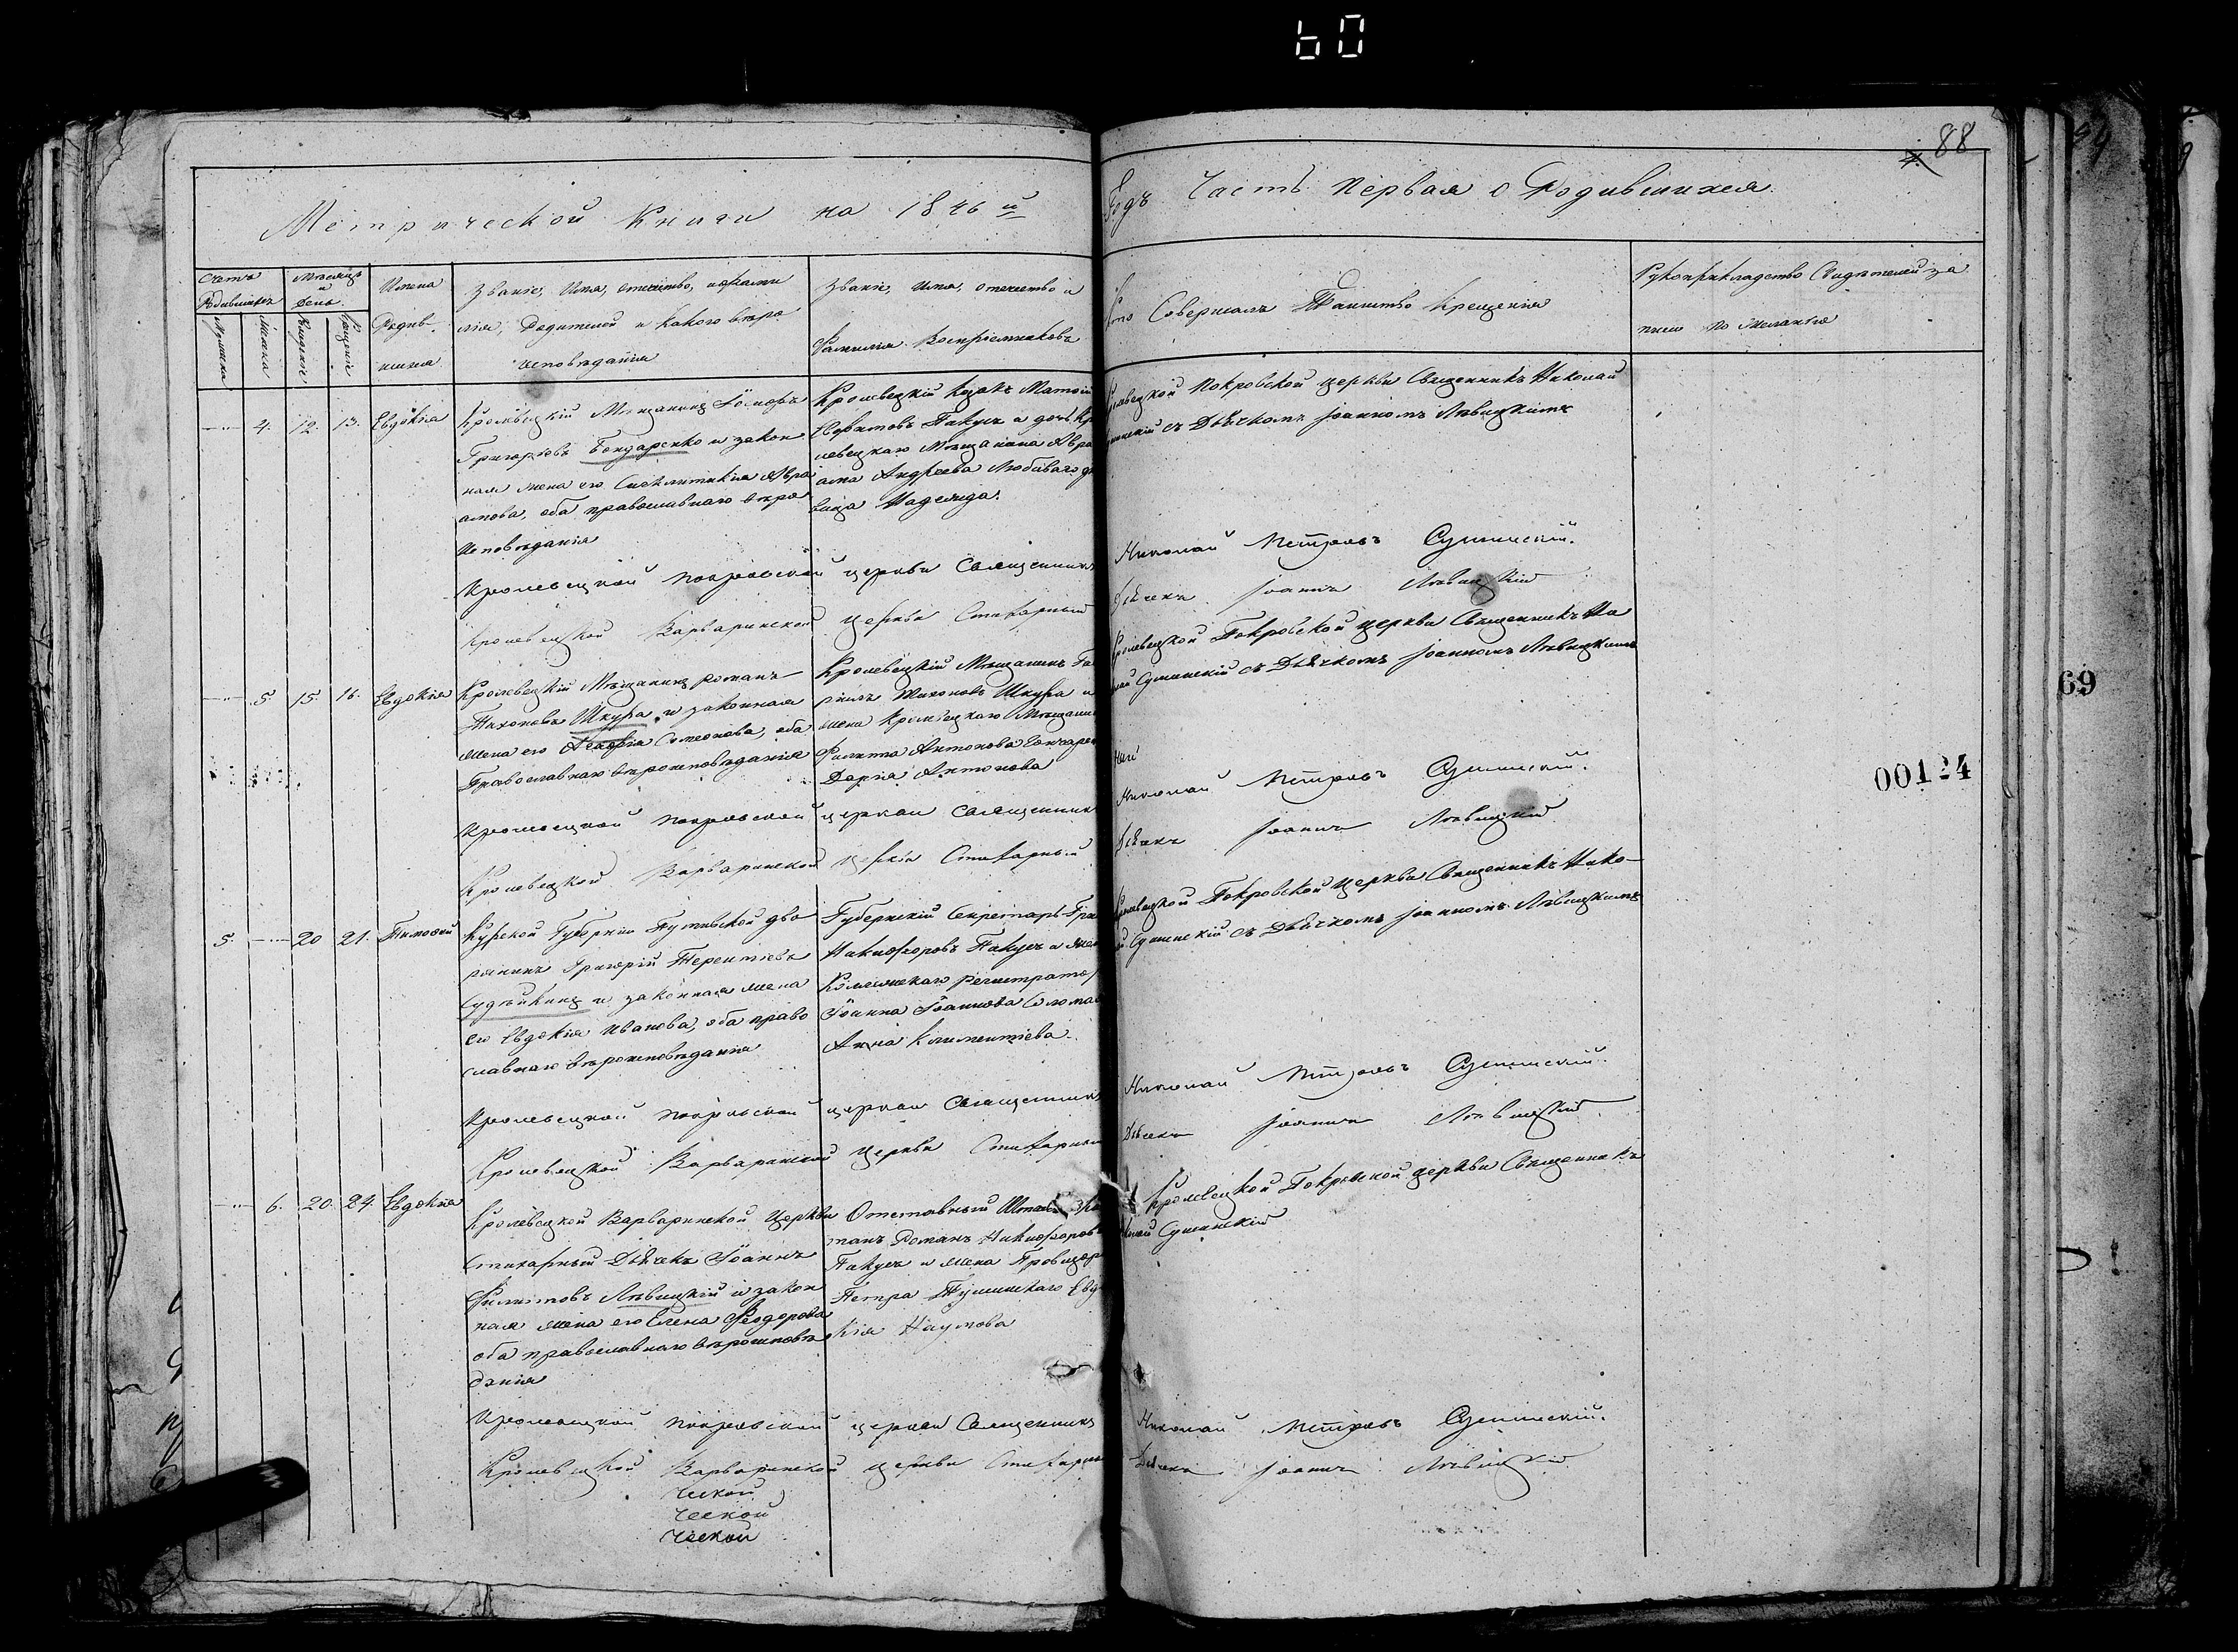 60
88
Метрической Книги на 1846 й
Годъ Часть Первая о Родившихся.
Счетъ Родившихся
Мужеска
Женска
Мѣсяцъ и День.
Рожденія
Крещенія
Имена Родив-
шихся
Званіе, Имя, отчество, и фами
лія, Родителей и какого вѣро
исповѣданія
Званіе, Имя, отечество и
Фамилія Воспріемниковъ
Кто Совершалъ Таинство Крещенія
Рукоприкладство Свидѣтелей за
писи по желанію
4. 12. 13. Евдокіа
Кролевецкій Мѣщанинъ Іосифъ
Григорьевъ Бондаренко и закон
ная жена его Авра
амова, оба православнаго вѣро
исповѣданія
Кролевецкій Козакъ Матөій
Пакуль и дочь Кр
левецкаго Мѣщанина Авра
ама Андреева дѣ
вица Надежда.
Кролевецкой Покровской церкви Священникъ Николай
Сушинскій съ Дьячкомъ Іоанномъ Лѣвицкимъ
Кролевецкой Покровской церкви Священникъ
Николай Петровъ Сушинскій.
Кролевецкой Варваринской церкви Стихарный
Дьячекъ Іоаннъ Лѣвицкій
5 15. 16. Евдокіа
Кролевецкій Мѣщанинъ Романъ
Тихоновъ Шкура и законная
жена его Симеонова, оба
Православнаго вѣроисповѣданія
Кролевецкій Мѣщанинъ Га
Тихоновъ Шкура и
жена Кролевецкаго Мѣщани
Филипа Антонова Гончарен
Дарія Антонова
Кролевецкой Покровской церкви Священникъ Ни
лай Сушинскій съ Дьячкомъ Іоанномъ Лѣвицкимъ
Кролевецкой Покровской церкви Священникъ
Николай Петровъ Сушинскій.
Кролевецкой Варваринской церкви Стихарный
Дьячекъ Іоаннъ Лѣвицкій
69
00124
5. 20 21. Тимоөей
Курской Губерніи Путивской дво
рянинъ Григорій Терентіевъ
Судѣйкинъ и законная жена
его Евдокія Иванова, оба право
славнаго вѣроисповѣданія
Губернскій Секретарь Гри
Никифоровъ Пакуль и жен
Колежскаго Регистратор
Іоанна Іоаннова Солома
Анна Климентіева.
Кролевецкой Покровской церкви Священникъ Нико-
лай Сушинскій съ Дьячкомъ Іоанномъ Лѣвицкимъ
Кролевецкой Покровской церкви Священникъ
Николай Петровъ Сушинскій.
Кролевецкой Варваринской церкви Стихарный
Дьячекъ Іоаннъ Лѣвицкій.
6. 20. 24. Евдокіа
Кролевецкой Варваринской Церкви
Стихарный Дьячекъ Іоаннъ
Филиповъ Лѣвицкій и закон
ная жена его Елена Өеодорова
оба православнаго вѣроисповѣ
данія
Отставный Штабсъ Ка
танъ Романъ Никифоровъ
Пакуль и жена
Петра Евдо
кія Наумова
Кролевецкой Покровской церкви Священникъ
Николай Сушинскій
Кролевецкой Покровской церкви Священникъ
Николай Петровъ Сушинскій.
Кролевецкой Варваринской церкви Стихарны
Дьячекъ Іоаннъ Лѣвицкій
ческой
ческой
ческой